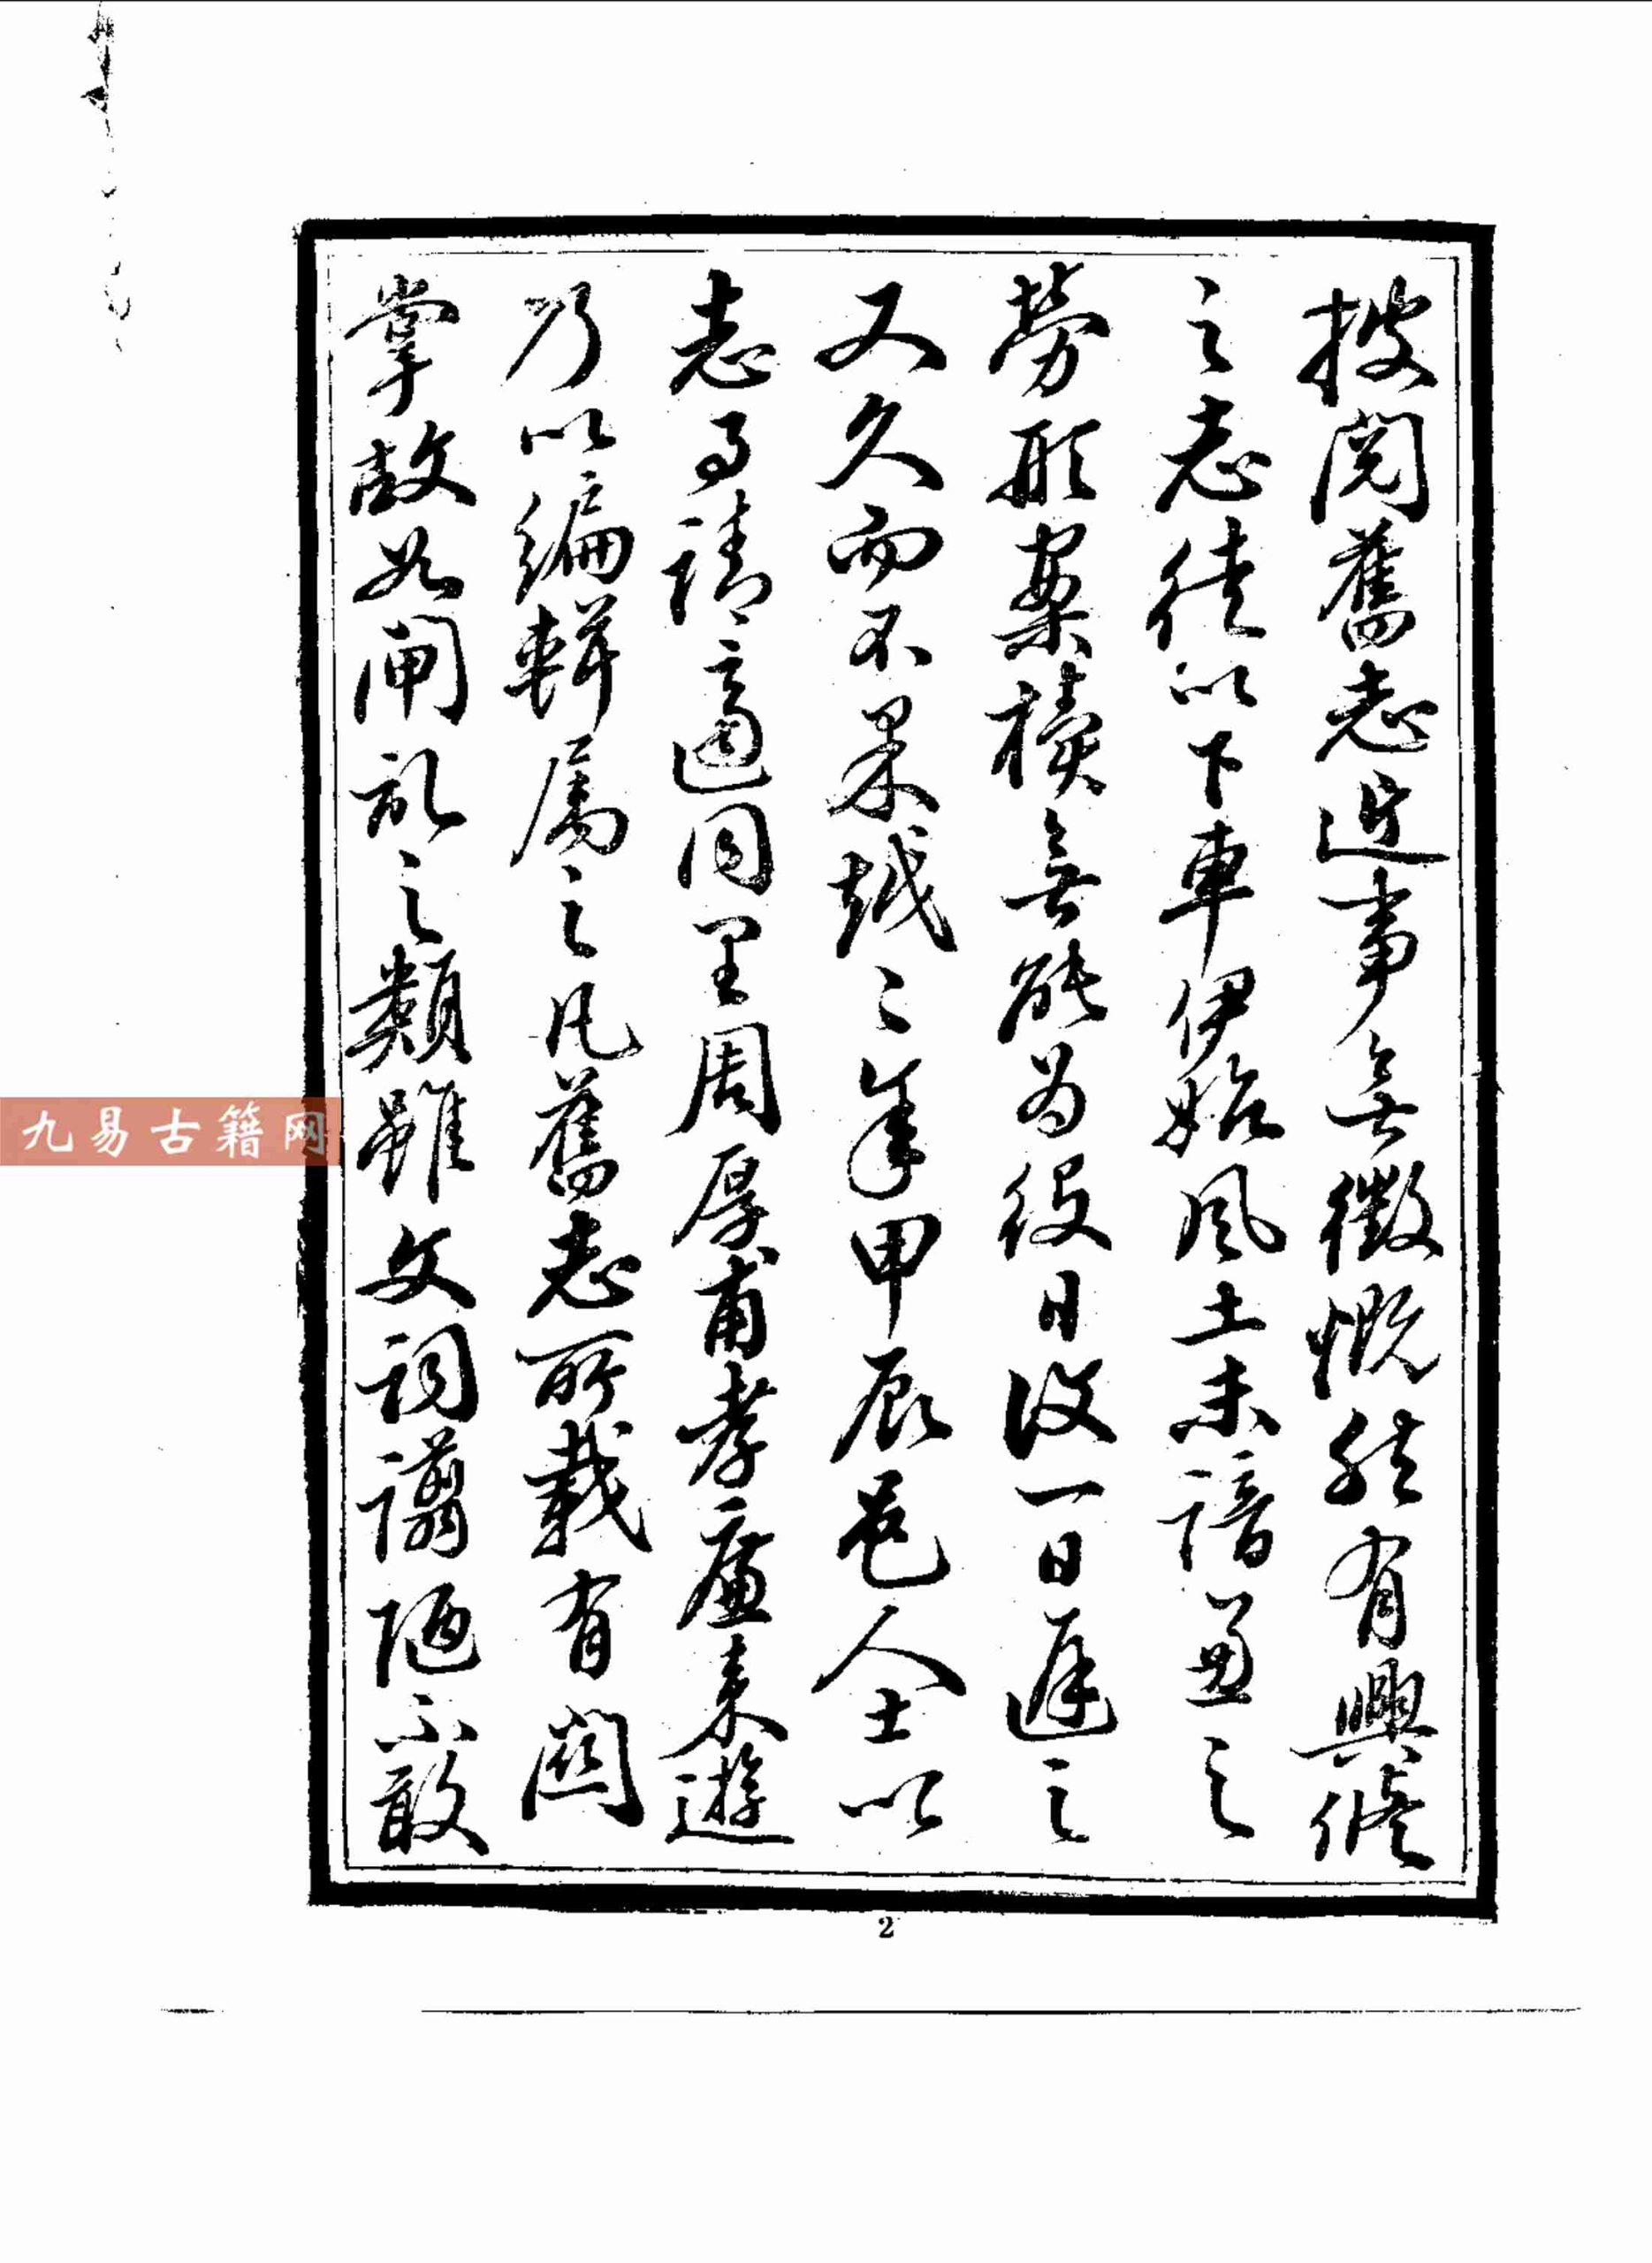 披閱舊志近事無徵慨然有興修
之志徒以下車伊始風土未諳兼之
勞形案牘無能為役日復一日遲之
又久而不果越二年甲辰邑人士以
志事請適同里周厚甫孝廉來遊
乃以編輯屬之凡舊志所載有關
掌故如閘記之類雖文詞譾陋不敢
九易古籍网
2